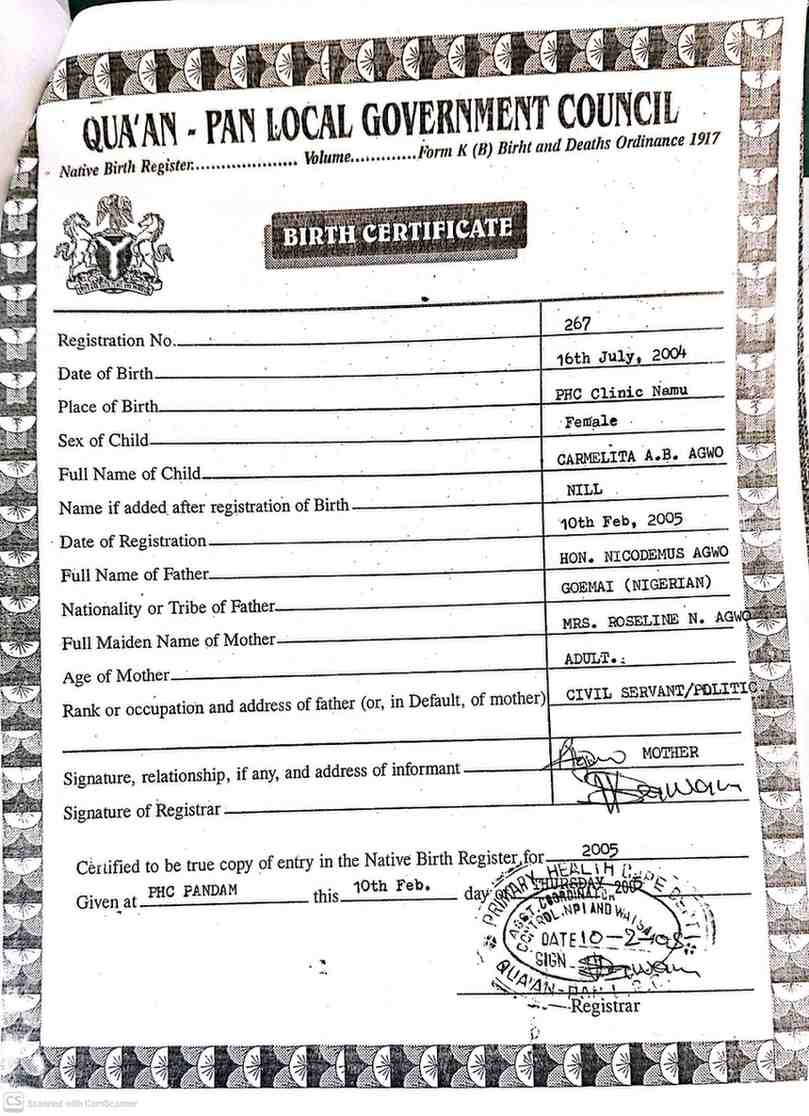 QUA'AN - PAN LOCAL GOVERNMENT COUNCIL
Native Birth Register..................... Volume.............Form K (B) Birht and Deaths Ordinance 1917
BIRTH CERTIFICATE
Registration No. 267
Date of Birth 16th July, 2004
Place of Birth PHC Clinic Namu
Sex of Child Female
Full Name of Child CARMELITA A.B. AGWO
Name if added after registration of Birth NILL
Date of Registration 10th Feb, 2005
Full Name of Father HON. NICODEMUS AGWO
Nationality or Tribe of Father GOEMAI (NIGERIAN)
Full Maiden Name of Mother MRS. ROSELINE N. AGWO
Age of Mother ADULT.:
Rank or occupation and address of father (or, in Default, of mother) CIVIL SERVANT/POLITIC
Signature, relationship, if any, and address of informant MOTHER
Signature of Registrar
Certified to be true copy of entry in the Native Birth Register for 2005
Given at PHC PANDAM this 10th Feb. day of THURSDAY 2005
PRIMARY HEALTH
ASST. COORDINATOR
CONTROL, NPI AND
DATE 10-2-
SIGN
QUA'AN-
Registrar
CS Scanned with CamScanner